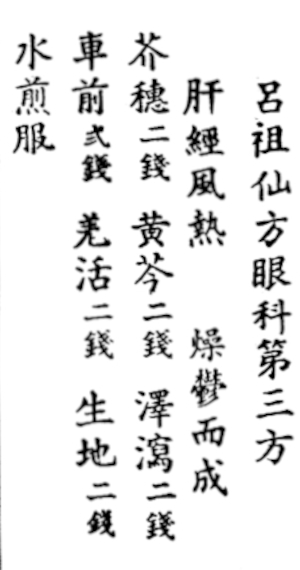 呂祖仙方眼科第三方
肝經風熱 燥鬱而成
芥穗二錢 黄芩二錢 澤瀉二錢
車前弍錢 羌活二錢 生地二錢
水煎服